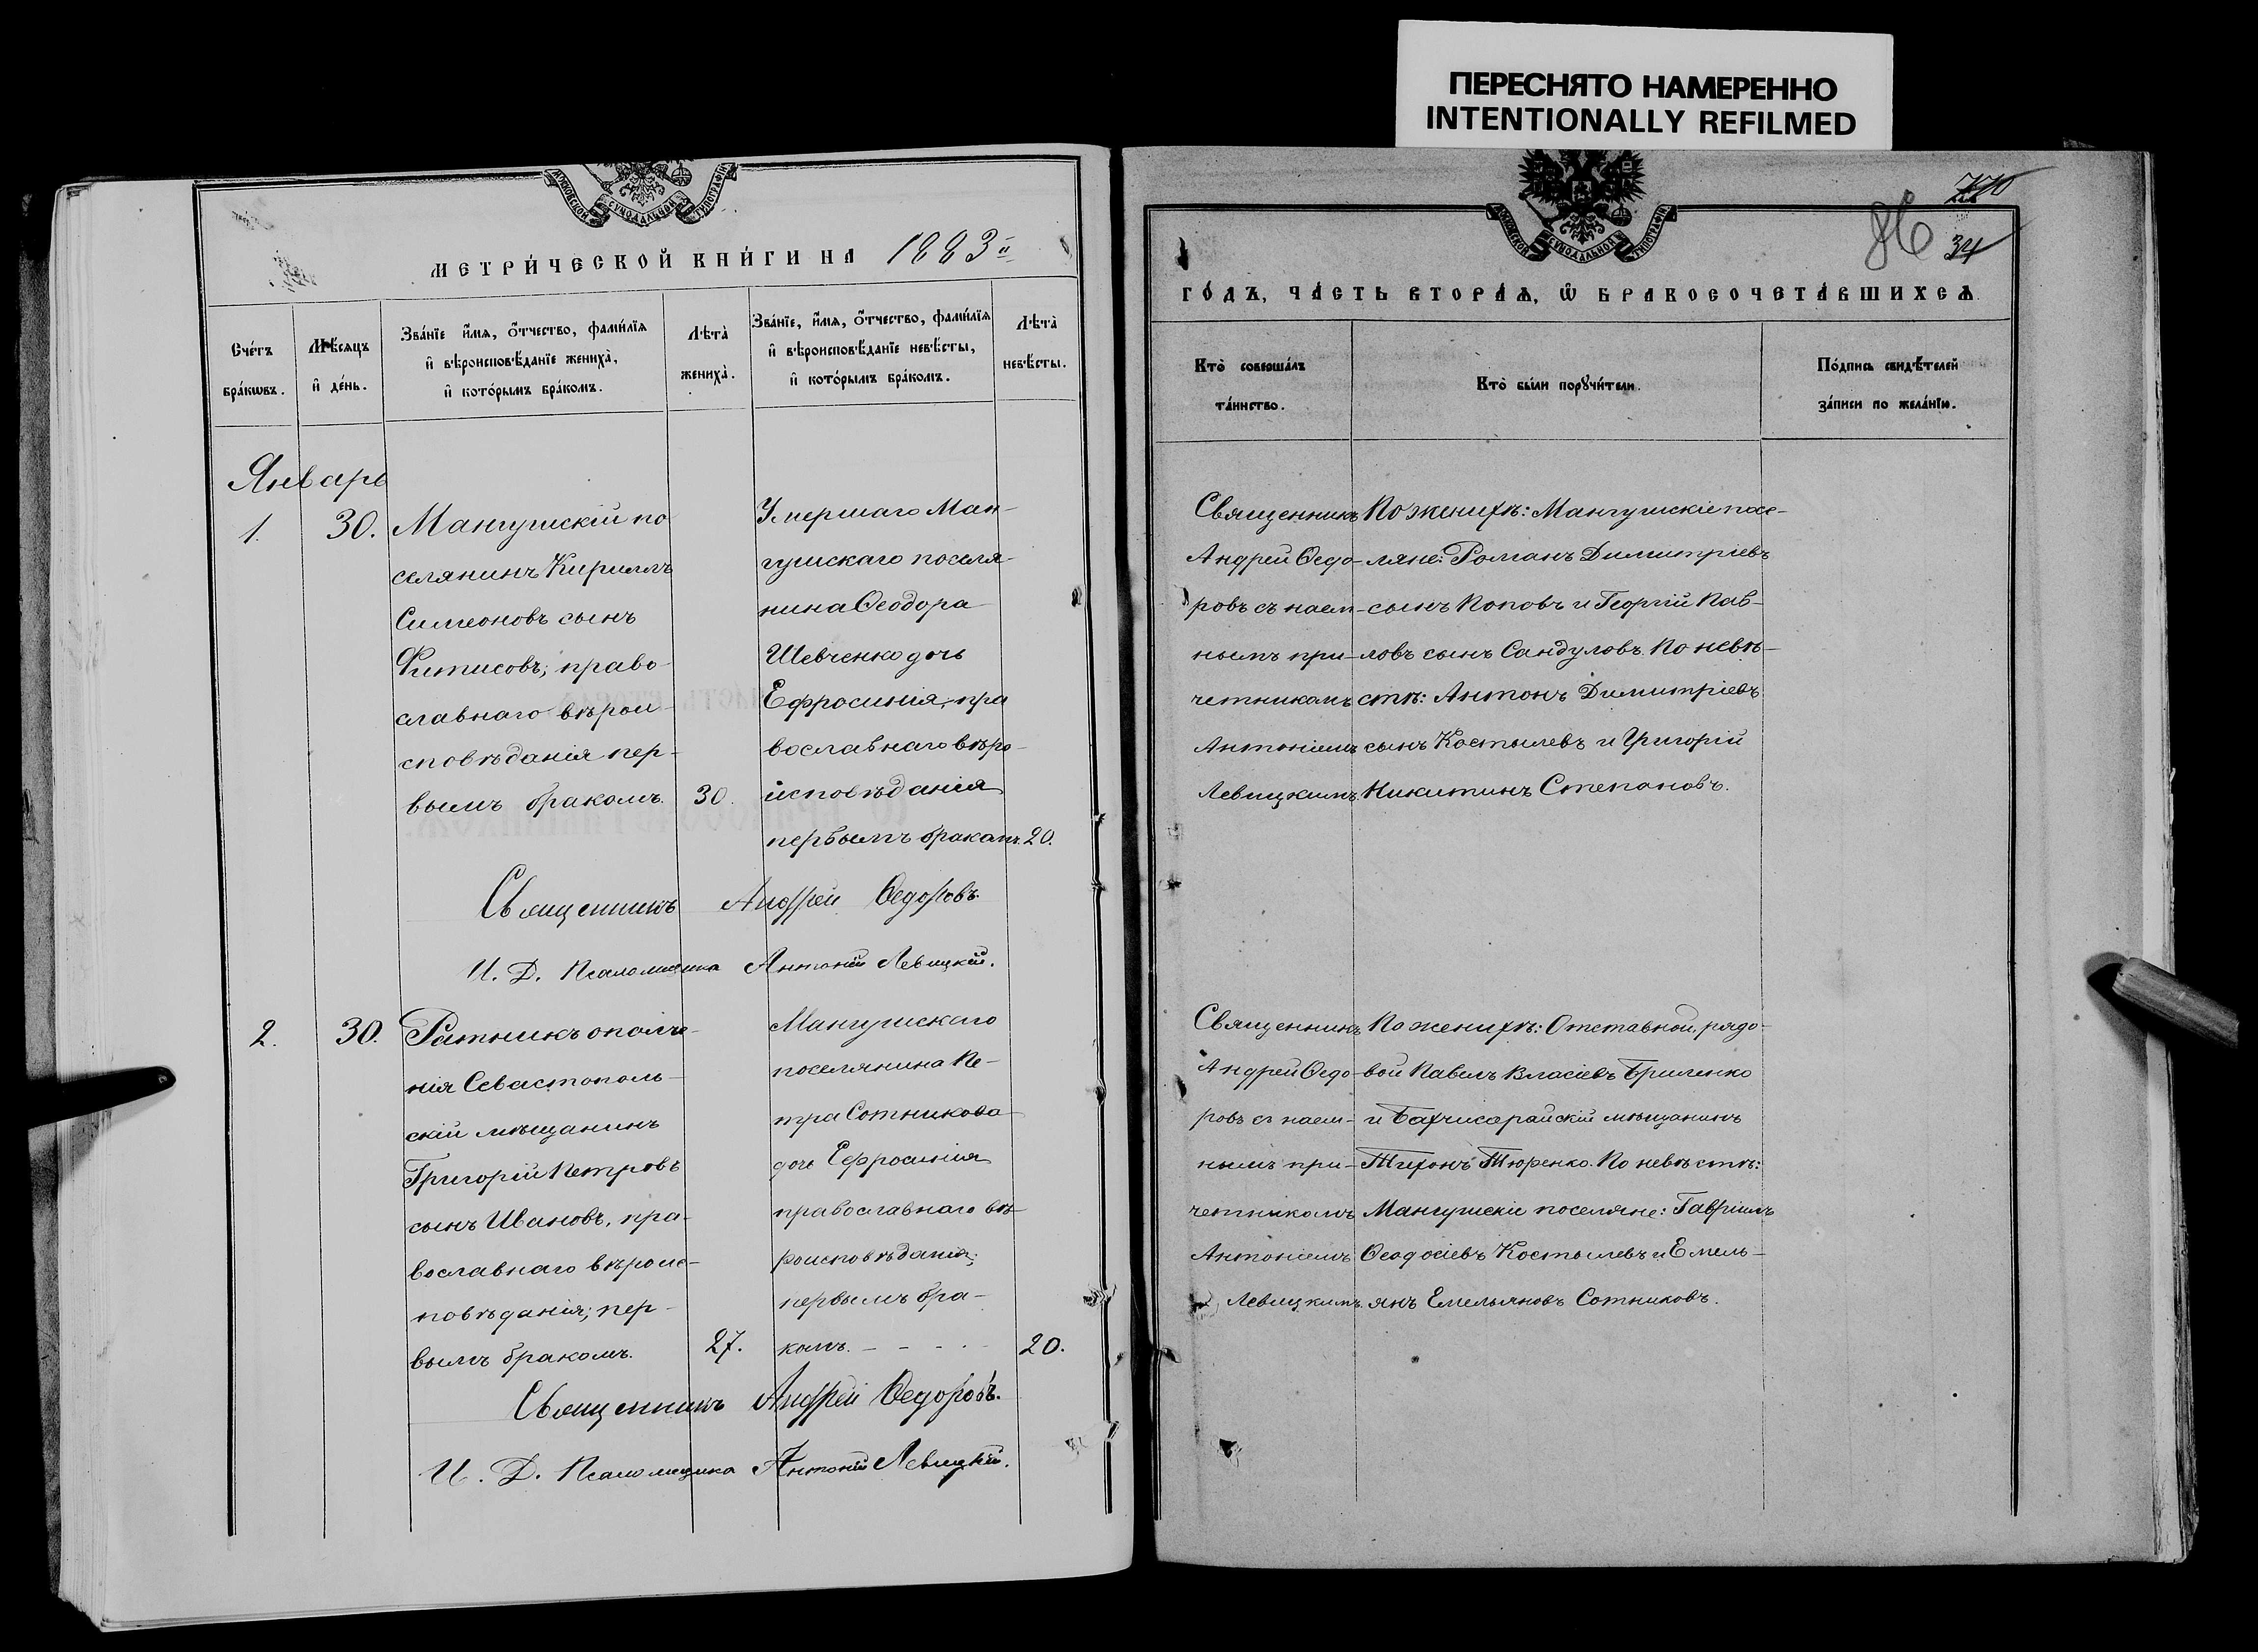 ПЕРЕСНЯТО НАМЕРЕННО
INTENTIONALLY REFILMED
МОСКОВСКОЙ СѴНОДАЛЬНОЙ ТИПОГРАФІИ
МЕТРИ́ЧЕСКОЙ КНИ́ГИ НА 1883й
Сче́тъ бра́кѡвъ.
Мѣ́сяцъ и҆ де́нь.
Зва́нїе и҆́мѧ, ѻ҆́тчество, фами́лїѧ и҆ вѣроисповѣ́данїе жениха̀, и҆ кото́рымъ бра́комъ.
Лѣ́та̀ жениха̀.
Зва́нїе, и҆́мѧ, ѻ҆́тчество, фами́лїѧ и҆ вѣроисповѣ́данїе невѣ́сты, и҆ кото́рымъ бра́комъ.
Лѣ́та̀ невѣ́сты.
Январь
1.
30.
Мангушскій по
селянинъ Кириллъ
Симеоновъ сынъ
Фитисовъ; право-
славнаго вѣрои-
сповѣданія пер-
вымъ бракомъ.
30.
Умершаго Ман-
гушскаго поселя-
нина Ѳеодора
Шевченко дочь
Ефросинія, пра
вославнаго вѣро-
исповѣданія
первымъ бракомъ.
20.
Священникъ Андрей Ѳедоровъ.
И. Д. Псаломщика Антоній Левицкій.
2.
30.
Ратникъ ополче-
нія Севастополь-
скій мѣщанинъ
Григорій Петровъ
сынъ Ивановъ, пра-
вославнаго вѣроис-
повѣданія; пер-
вымъ бракомъ.
27.
Мангушскаго
поселянина Пе-
тра Сотникова
дочь Ефросинія
православнаго вѣ-
роисповѣданія;
первымъ бра-
комъ. - - - -
20.
Священникъ Андрей Ѳедоровъ.
И. Д. Псаломщика Антоній Левицкій.
86
34
МОСКОВСКОЙ СѴНОДАЛЬНОЙ ТИПОГРАФІИ
ГО́ДЪ, ЧА́СТЬ ВТОРА́Ѧ, Ѡ҆ БРАКОСОЧЕТА́ВШИХСѦ
Кто̀ соверша́лъ та́инство.
Кто̀ бы́ли порꙋчи́тели.
По́дпись свидѣ́телей за́писи по жела́нїю.
Священникъ
Андрей Ѳедо-
ровъ съ наем-
нымъ при-
четникомъ
Антоніемъ
Левицкимъ.
По женихѣ: Мангушскіе посе-
ляне: Романъ Димитріевъ
сынъ Поповъ и Георгій Пав-
ловъ сынъ Сандуловъ. По невѣ-
стѣ: Антонъ Димитріевъ
сынъ Костылевъ и Григорій
Никитинъ Степановъ.
Священникъ
Андрей Ѳедо-
ровъ съ наем-
нымъ при-
четникомъ
Антоніемъ
Левицкимъ.
По женихѣ: Отставной, рядо-
вой Павелъ Власіевъ Бриленко
и Бахчисарайскій мѣщанинъ
Тихонъ Тюренко. По невѣстѣ:
Мангушскіе поселяне: Гавріилъ
Ѳеодосіевъ Костылевъ и Емель-
янъ Емельяновъ Сотниковъ.